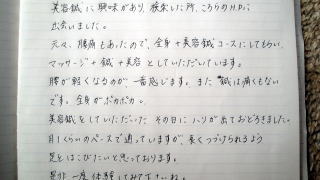 美容鍼に興味があり、検索した所、こちらのH.Pに
出会いました。
元々、腰痛もあったので、全身＋美容鍼コースにしてもらい、
マッサージ＋鍼＋美容としていただいています。
腰が軽くなるのが一番感じます。また鍼は痛くもない
です。全身がポカポカ。
美容鍼をしていただいたその日にハリが出ておどろきました。
月1くらいのペースで通っていますが、長くつづけられるよう
足をはこびたいと思っております。
是非一度体験してみて下さいね。